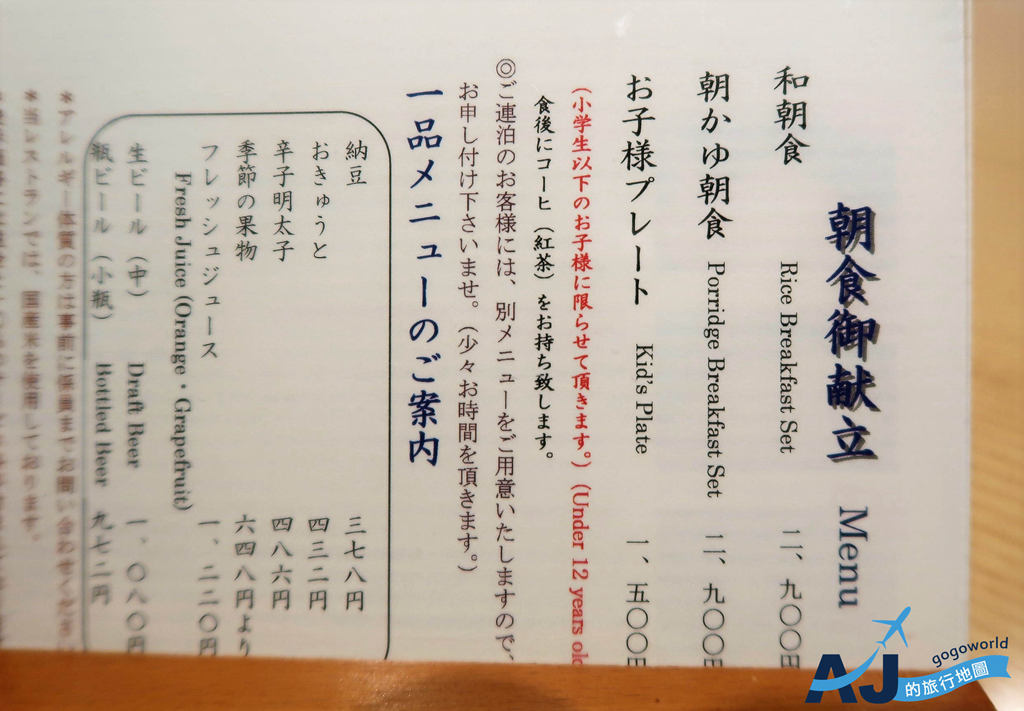 朝食御献立 Menu
和朝食 Rice Breakfast Set 二、九〇〇円
朝かゆ朝食 Porridge Breakfast Set 二、九〇〇円
お子様プレート Kid's Plate 一、五〇〇円
(小学生以下のお子様に限らせて頂きます。)(Under 12 years old
食後にコーヒ(紅茶)をお持ち致します。
◎ご連泊のお客様には、別メニューをご用意いたしますので、
お申し付け下さいませ。(少々お時間を頂きます。)
一品メニューのご案内
納豆 三七八円
おきゅうと 四三二円
辛子明太子 四八六円
季節の果物 六四八円より
フレッシュジュース 一、二二〇円
Fresh Juice (Orange・Grapefruit)
生ビール(中) Draft Beer 一、〇八〇円
瓶ビール(小瓶) Bottled Beer 九七二円
*アレルギー体質の方は事前に係員までお問い合わせください
*当レストランでは、国産米を使用しております。
gogoworld
AJ的旅行地圖